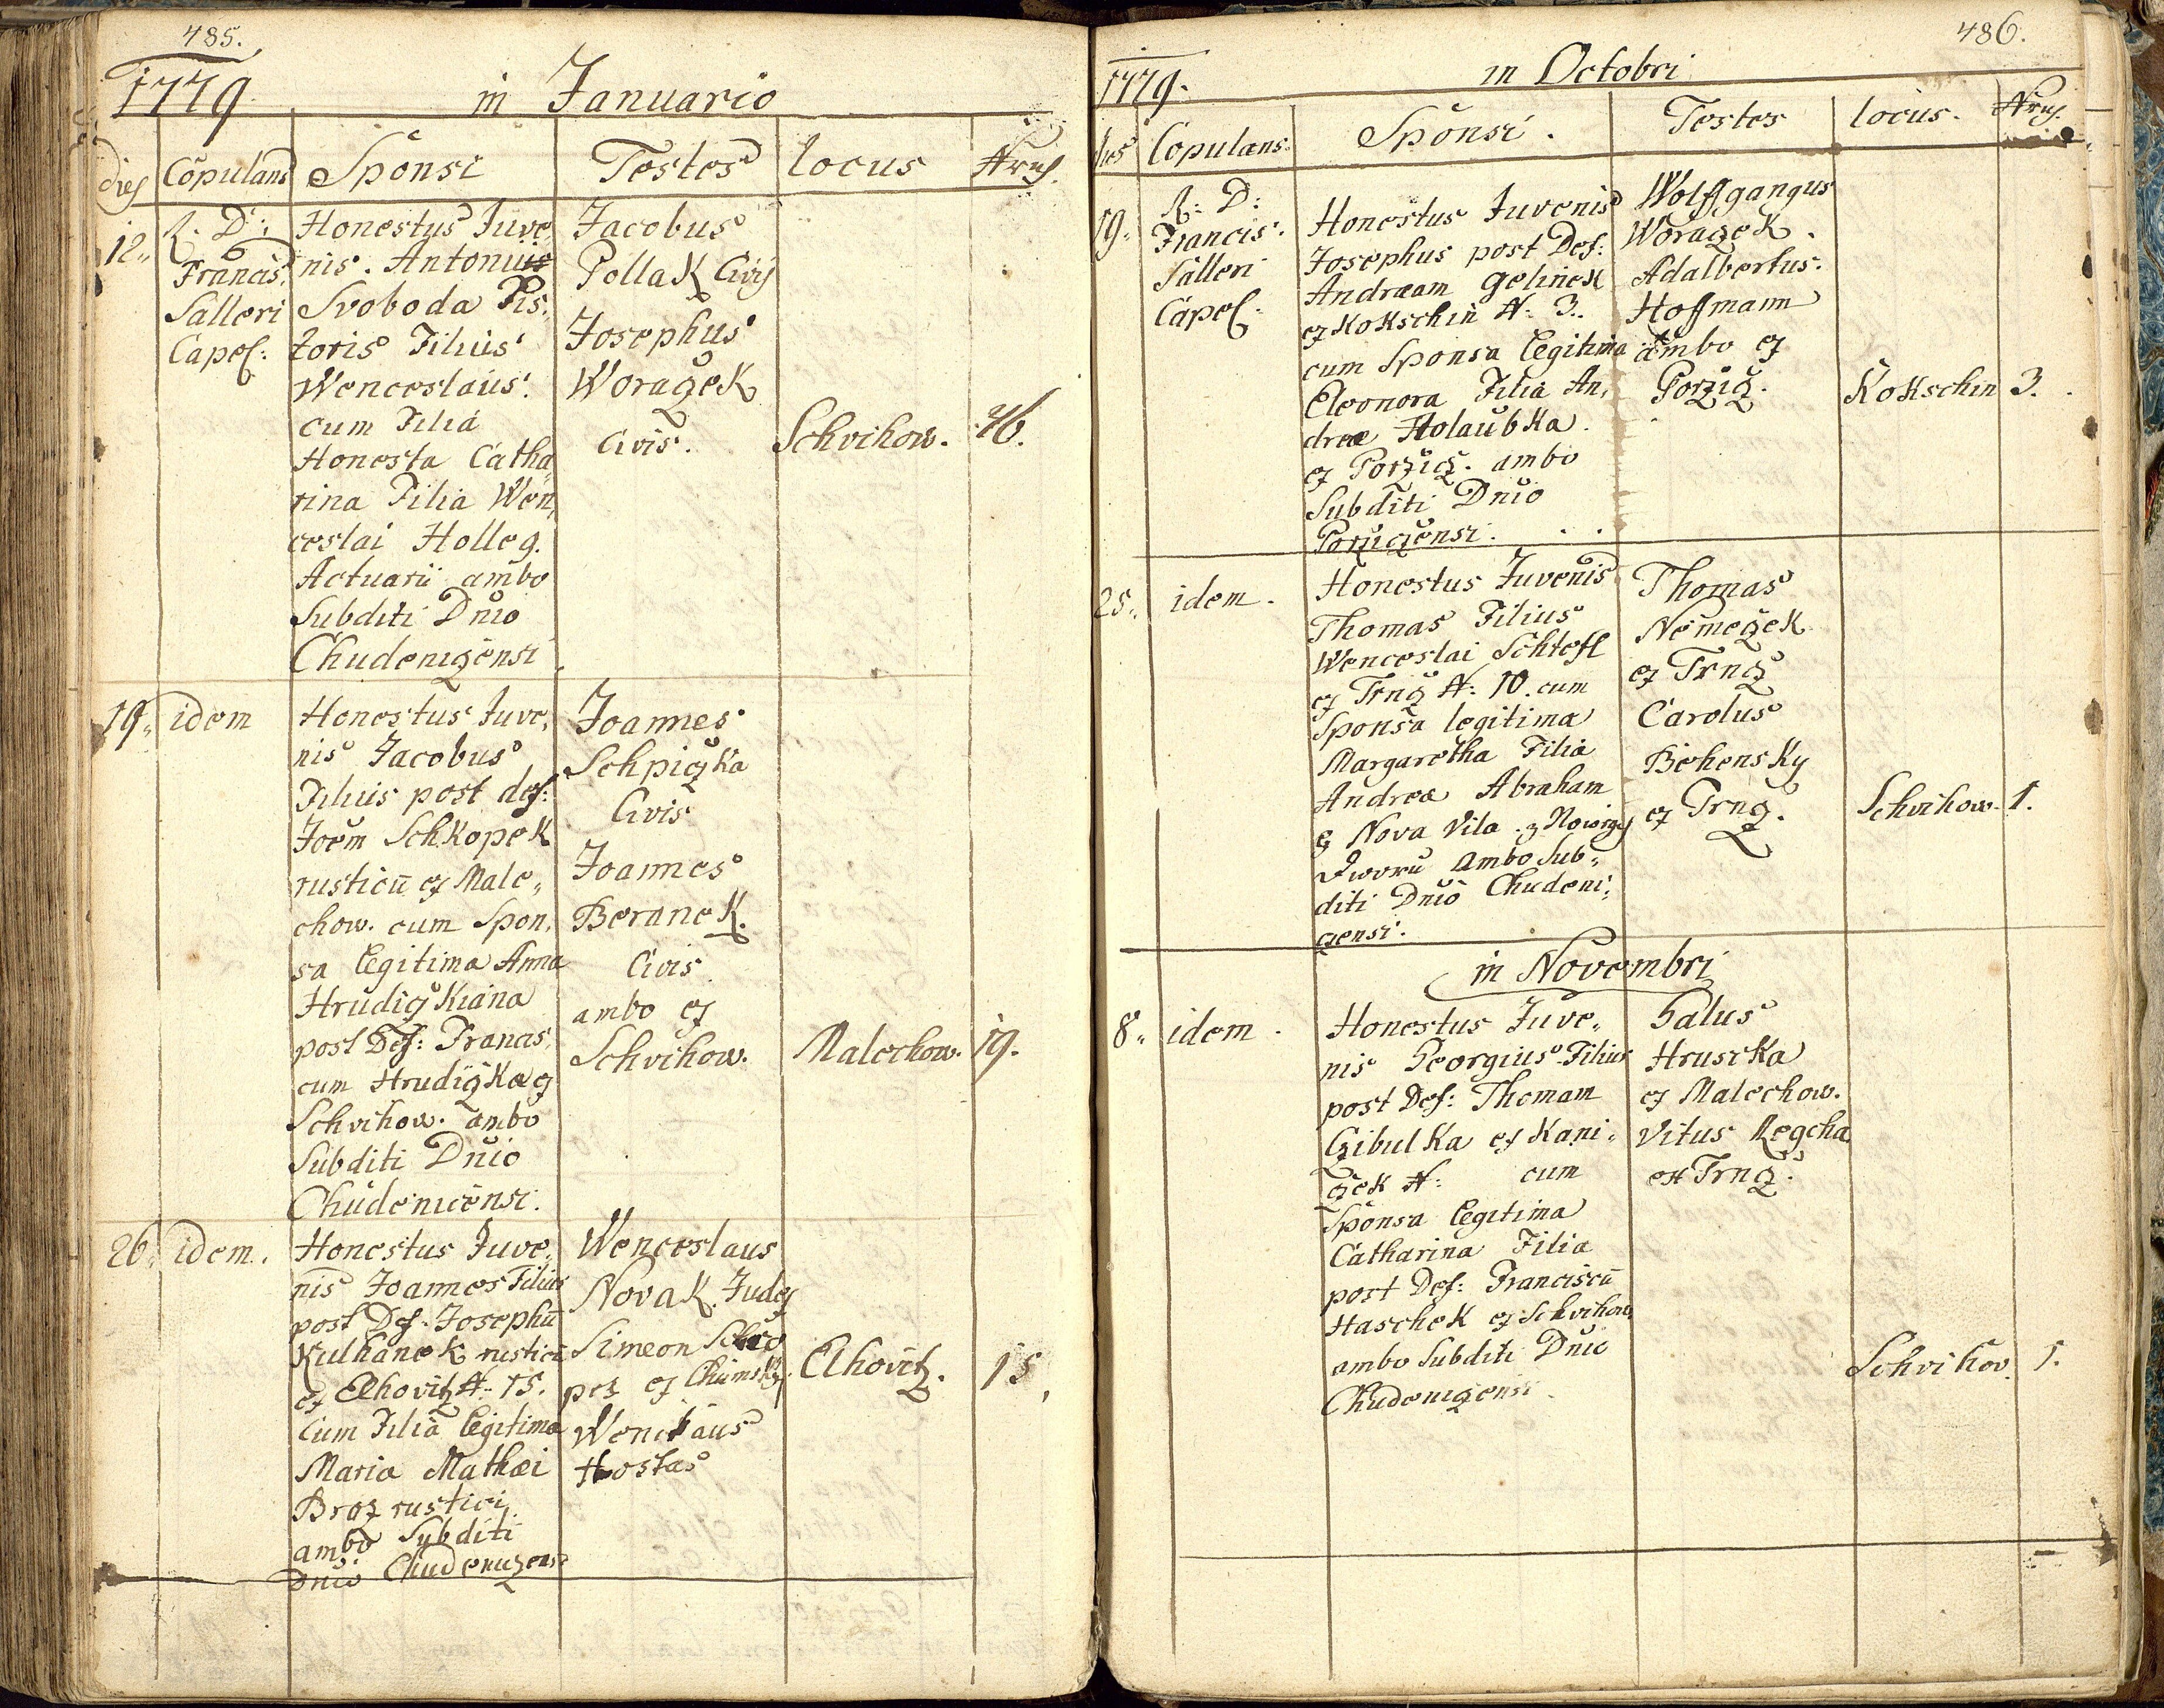 485.
1779 in Januario
dies Copulans Sponsi Testes locus Nrus.
12. R. D:
Francis.
Salleri
Capel:
Honestus Juve,
nis. Antonius
Svoboda Pis,
toris Filius
Wenceslaus.
cum Filia
Honesta Catha,
rina Filia Wen,
ceslai Holleg.
Actuarii ambo
Subditi Dnio
Chudenizensi
Jacobus
Pollak Civis
Josephus
Woraczek
Civis.
Schvihow. 46.
19. idem
Honestus Juve,
nis Jacobus
Filius post def:
Joem Schkopek
rusticū ex Male,,
chow. cum Spon,
sa legitima Anna
Hrudiczkiana
post Def: Francis,
cum Hrudiczka ex
Schvihow. ambo
Subditi Dnio
Chudenicensi.
Joannes
Schpiczka
Civis
Joannes
Beranek.
Civis
ambo ex
Schvihow.
Malechow. 19.
26. idem.
Honestus Juve,
nis Joannes Filius
post Def. Josephū
Kulhanek rusticū
ex Elhovitz N. 15.
Cum Filia legitima
Maria Mathæi
Braz rustici
ambo Subditi
Dnio Chudenizensi
Wenceslaus
Novak. Judex
Simeon
pez ex Chumsky.
Wenclaus
Hostas
Elhovitz. 15,
486.
1779. in Octobri
dies Copulans. Sponsi. Testes locus. Nrus.
19. R: D:
Francis.
Salleri
Capel:
Honestus Juvenis
Josephus post Def:
Andræam Gelinek
ex Kokschin N: 3.
cum Sponsa legitima
Eleonora Filia An,
dreæ Holaubka.
ex Porzicz. ambo
Subditi Dnio
Porziczensi.
Wolffgangus
Woraczek.
Adalbertus.
Hoffmann
ambo ex
Porzicz.
Kokschin 3.
25. idem.
Honestus Juvenis
Thomas Filius
Wenceslai Schtefl
ex Trncz N: 10. cum
Sponsa legitima
Margaretha Filia
Andreæ Abraham
ex Nova Vila. z Noveg
Dworu ambo Sub,,
diti Dnio Chudeni,
czensi.
Thomas
Nemeczek
ex Trncz
Carolus
Behensky
ex Trncz.
Schvihow. 1.
in Novembri
8. idem.
Honestus Juve,,
nis Georgius Filius
post Def: Thomam
Czibulka ex Kani,,
czek N: cum
Sponsa legitima
Catharina Filia
post Def: Franciscū
Haschek ex Schvihow
ambo Subditi Dnio
Chudenizensi.
Galus
Hruscka
ex Malechow.
Vitus Regcha
ex Trncz.
Schvihov. 1.